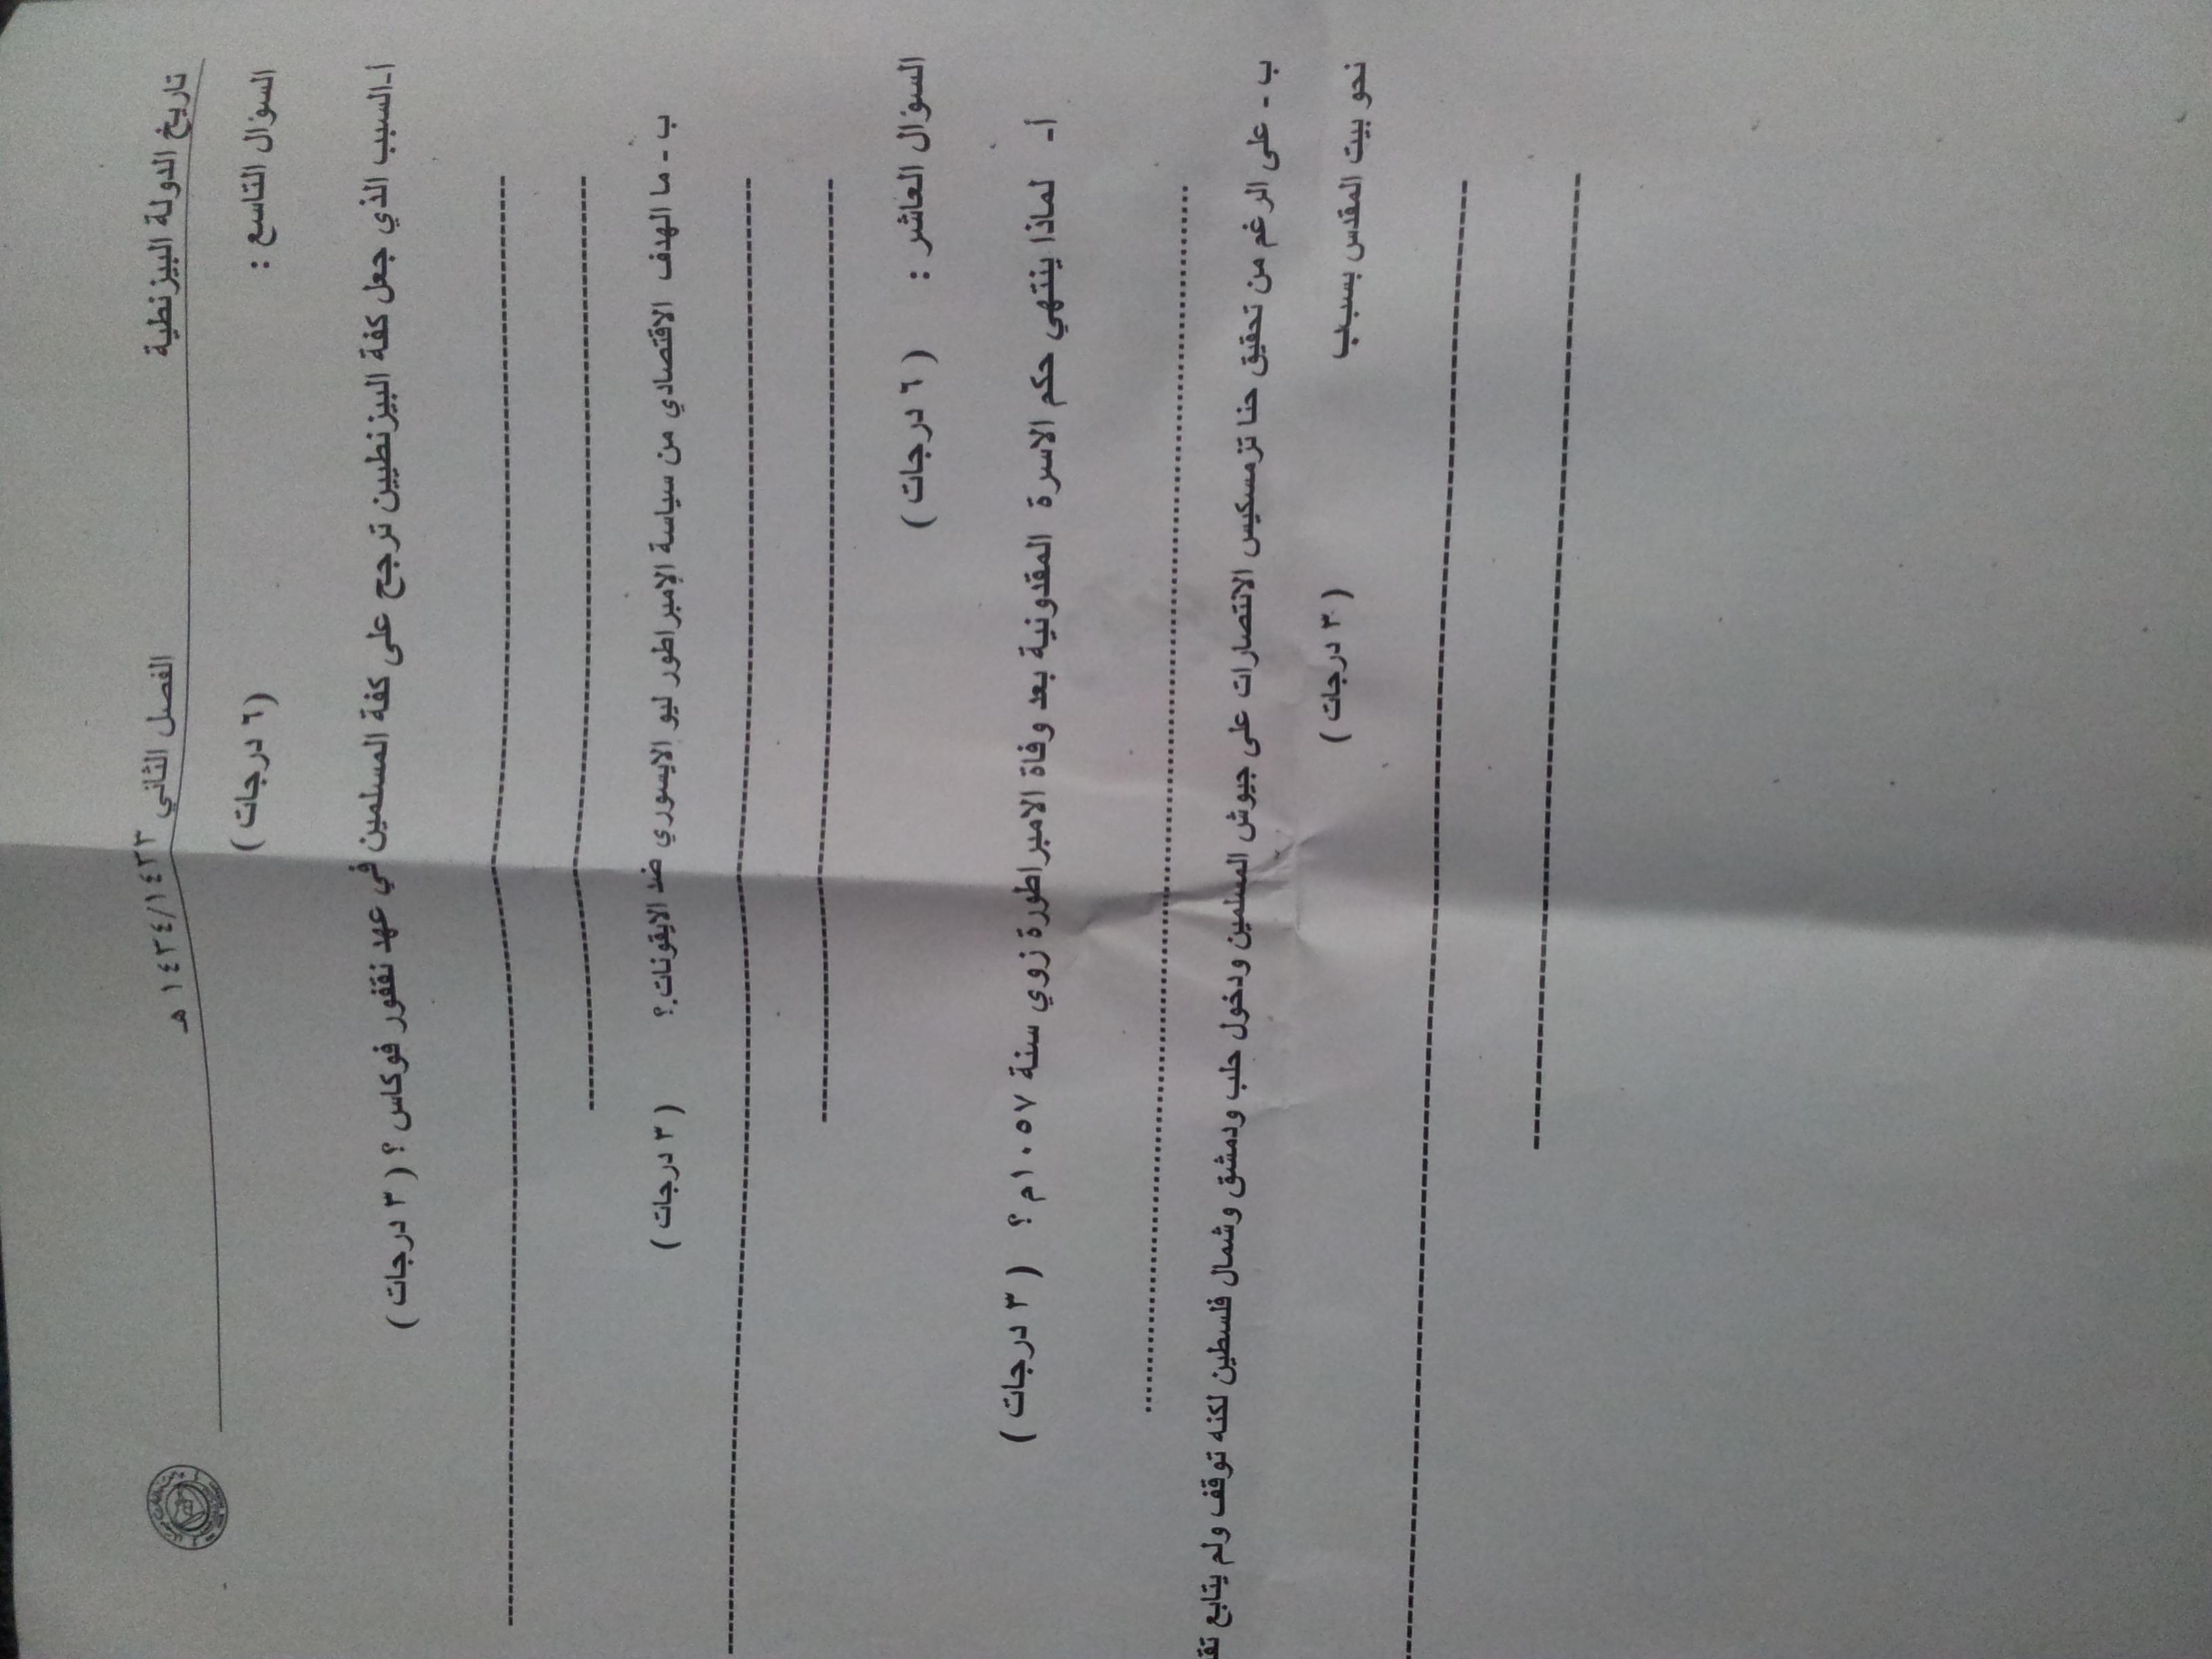 تاريخ الدولة البيزنطية الفصل الثاني ١٤٣٤/١٤٣٣ هـ
السؤال التاسع : ( ٦ درجات )
أ-السبب الذي جعل كفة البيزنطيين ترجح على كفة المسلمين في عهد نقفور فوكاس ؟ ( ٣ درجات )
ب - ما الهدف الاقتصادي من سياسة الإمبراطور ليو الايسوري ضد الايقونات ؟ ( ٣ درجات )
السؤال العاشر : ( ٦ درجات )
أ- لماذا ينتهي حكم الاسرة المقدونية بعد وفاة الامبراطورة زوي سنة ١٠٥٧م ؟ ( ٣ درجات )
ب - على الرغم من تحقيق حنا تزمسكيس الانتصارات على جيوش المسلمين ودخول حلب ودمشق وشمال فلسطين لكنه توقف ولم يتابع
نحو بيت المقدس بسبب ( ٣ درجات )